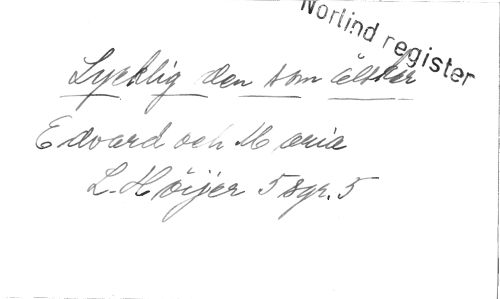 Norlind register
Lycklig den som älskar
Edvard och Maria
L. Höijer 5 sgr. 5